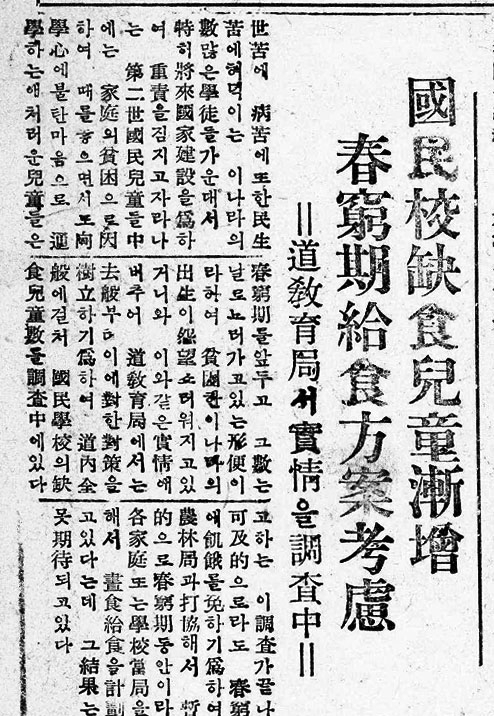 國民校缺食兒童漸增
春窮期給食方案考慮
＝道敎育局서實情을調査中＝
世苦에 病苦에또한民生
苦에허덕이는 이나라의
數많은學徒들가운대서
特히將來國家建設을爲하
여 重責을짐지고자라나
는 第二世國民兒童들中
에는 家庭의貧困으로因
하여 때를놓으면서도向
學心에불탄마음으로 通
學하는애처러운兒童들은
春窮期를앞두고 그數는
날로느러가고있는形便이
라하여 貧困한이나라의
出生이怨望스러워지고있
거니와 이와같은實情에
버추어 道敎育局에서는
去般부터이에對한對策을
樹立하기爲하여 道內全
般에걸처 國民學校의缺
食兒童數를調査中에있다
고하는 이調査가끝나
可及的으로라도 春窮
에飢餓를免하기爲하여
農林局과打協해서 暫
的으로春窮期동안이라
各家庭또는學校當局을
해서 晝食給食을計劃
고있다는데 그結果는
못期待되고있다